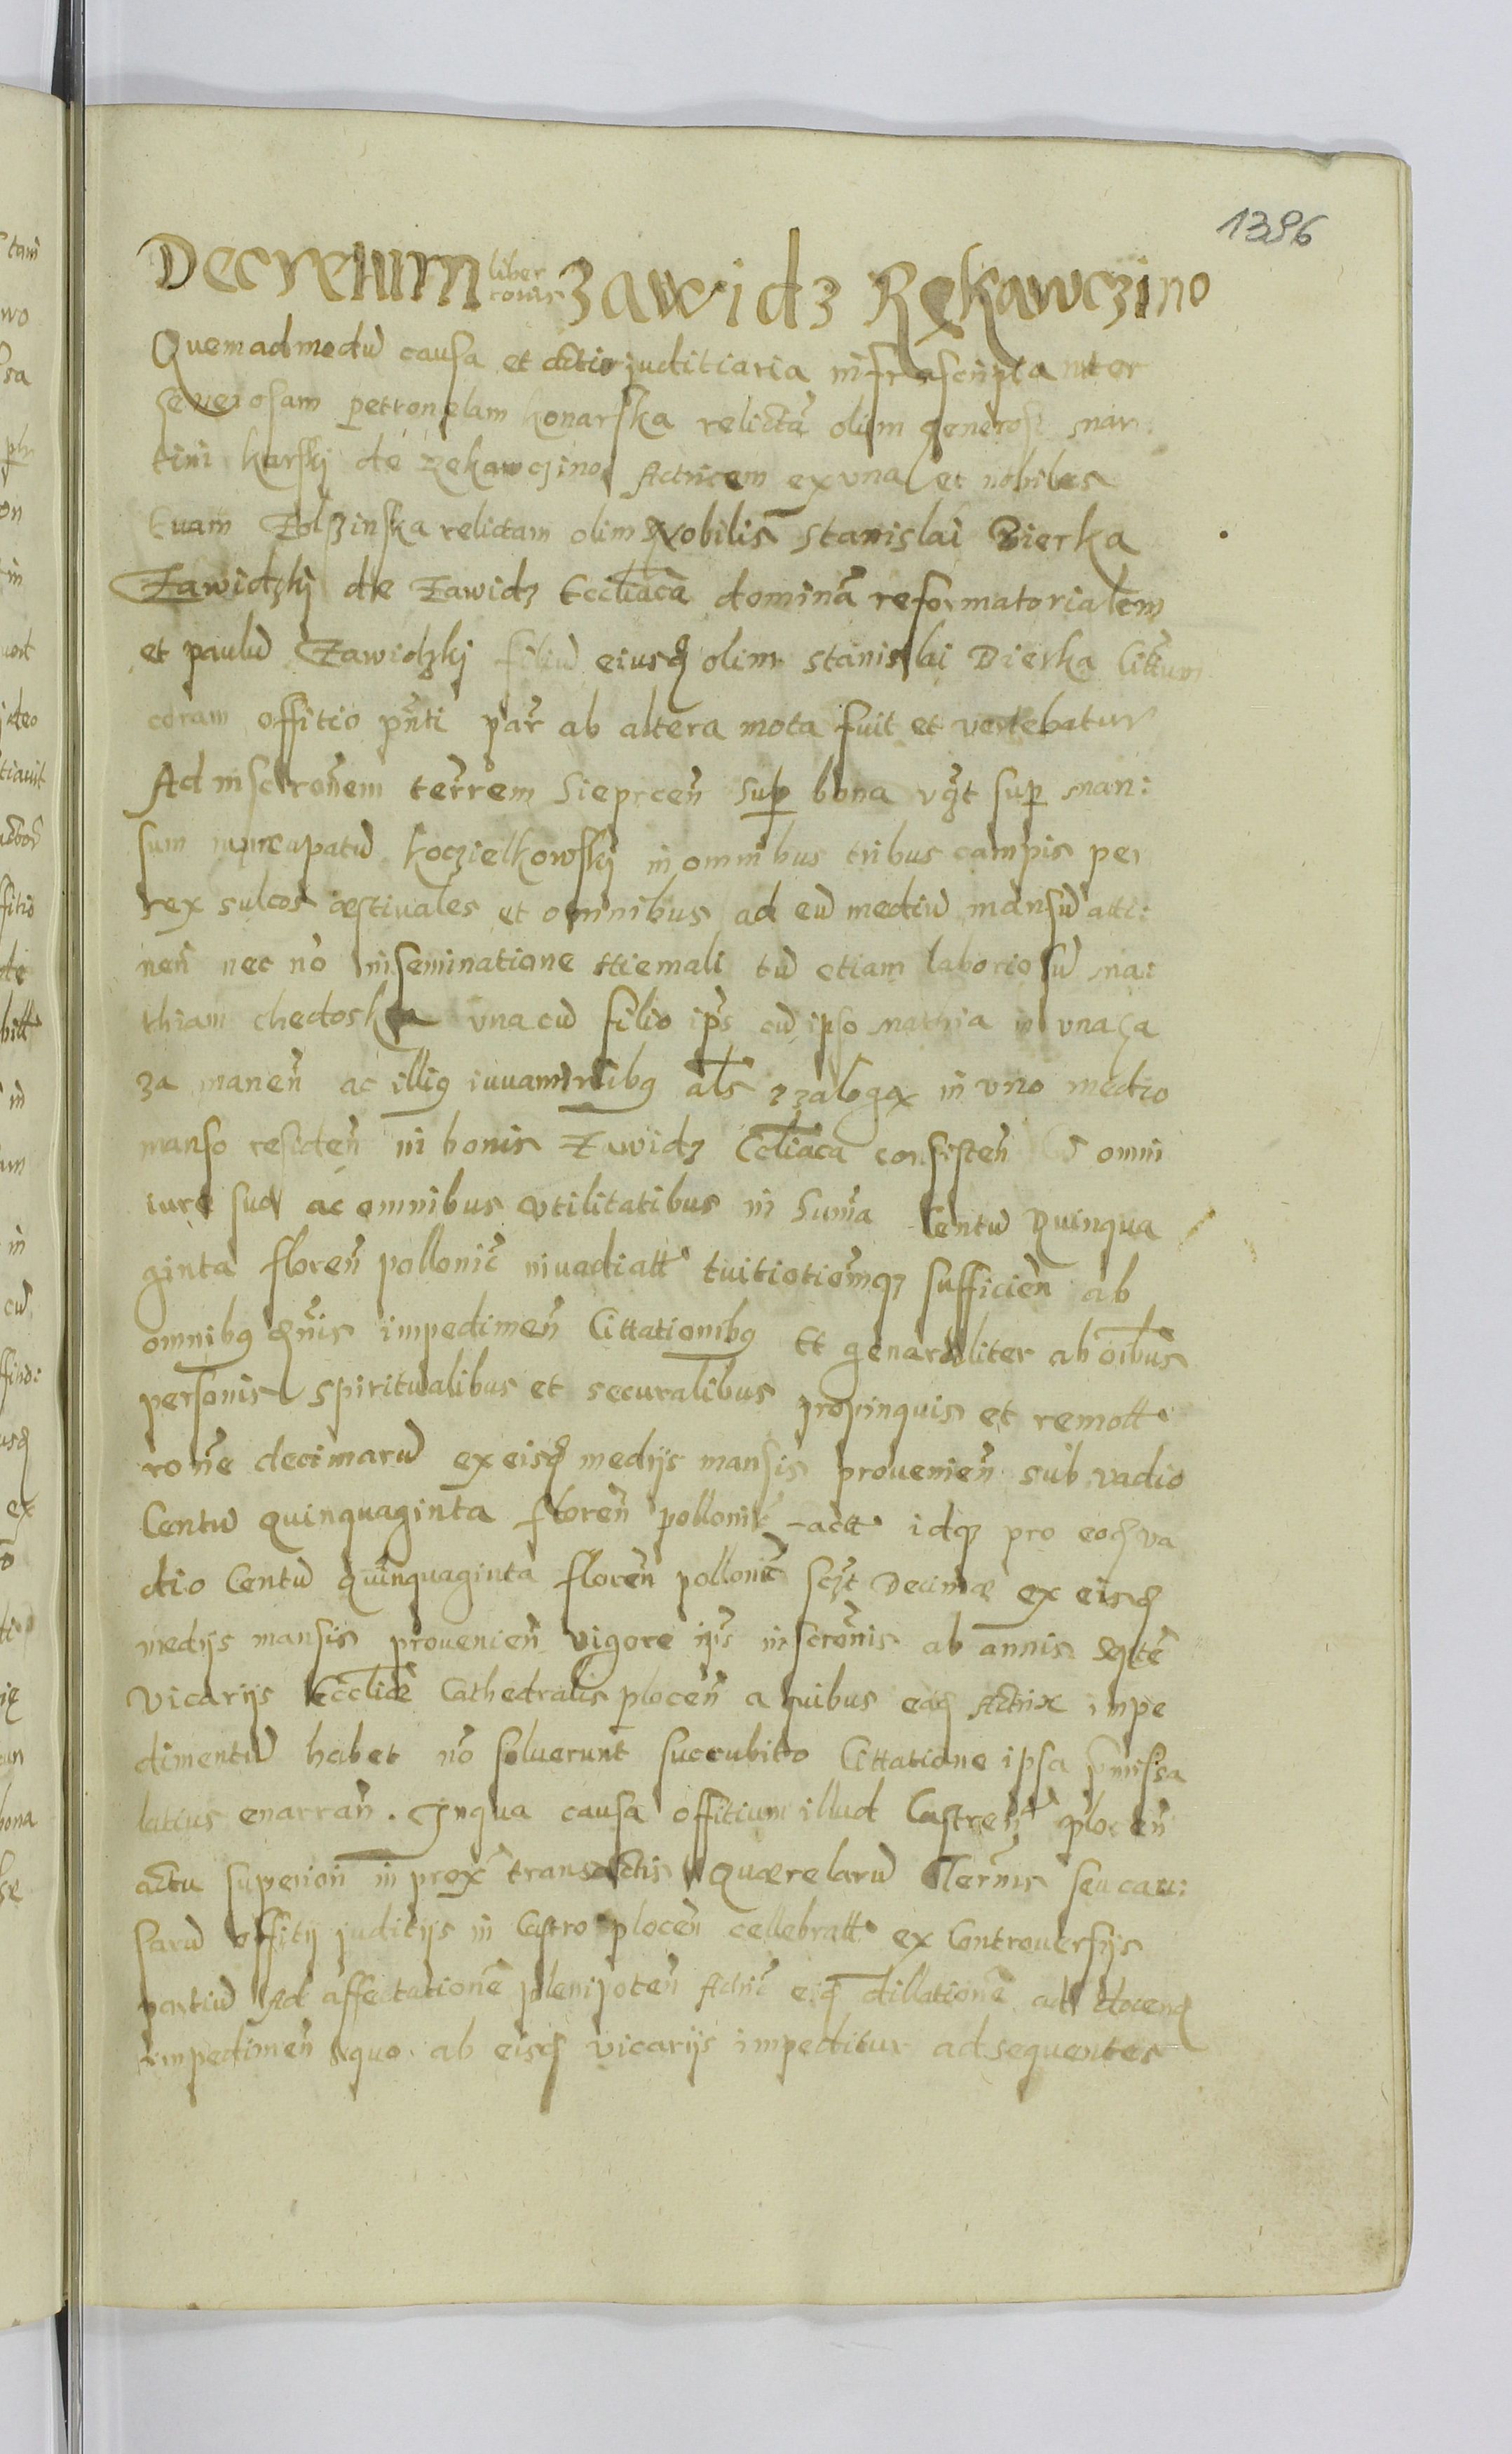 1396
Decretum liber
Zawidz Rękawczino
Quemadmodũ causa et actio juditiaria infrascripta inter
generosam petronelam konarska relictã olim generosi mar:
tini karskj de rekawczino Actricem ex vna et nobiles
Evam Zolszinska relictam olim Nobilis stanislai Bierka
Zawidzkj de Zawidz Eccliaca dominã reformatorialem
et paulũ Zawidzkj filiũ eiusq̃ olim stanislai Bierka Cittum
coram offitio pñti par̃ ab altera mota fuit et vertebatur
Ad inscrõnem terrem̃ Sieprceñ sup bona vq̃t sup man:
sum nuncupatũ koczielkowskj in omnibus tribus campis per
sex sulcos æstiuales et omnibus ad eũ mediũ mansũ atti:
neñ nec nõ inseminatione Hiemali tũ etiam laboriosũ ma:
thiam chedoska vna cũ filio ip̃s cũ ipso mathia in vna ca
za maneñ ac illiq iuuaminibq als zzalogax in vno medio
manso resideñ in bonis Zawidz Eccliaca consisteñ omni
iure suo ac omnibus vtilitatibus in Sum̃a Centũ Quinqua
ginta floreñ polloniĉ inuadiatt tuitiotiem̃q; sufficieñ ab
omnibq q̃uis impedimeñ Cittationibq Et generaliter ab oĩbus
personis spiritualibus et securalibus propinquis et remott
roñe decimarũ ex eisq̃ medijs mansis prouenieñ sub vadio
Centũ quinquaginta floreñ polloniĉ actt idq; pro eoq̃ va
dio Centũ quinquaginta floreñ polloniĉ scq̃t Decimæ ex eisq̃
medijs mansis prouenieñ vigore ip̃is inscrõnis ab annis septẽ
Vicarijs Eccliæ Cathedralis ploceñ a quibus eaq̃ Actrix impe
dimentũ habet nõ soluerunt succubitto Cittatione ipsa p̃missa
latius enarrañ. Jnqua causa offitium illud Castreñ ploceñ
actu superiori in prox̃ transactis Quærelarũ Term̃s seu cau:
sarũ offitij juditijs in Castro ploceñ cellebratt ex Controuersijs
partiũ Ad affectationẽ plenipoteñ Actriĉ eiq̃ dillationẽ ad docenq̃
impedimeñ quo ab eisq̃ vicarijs impeditur ad sequentes